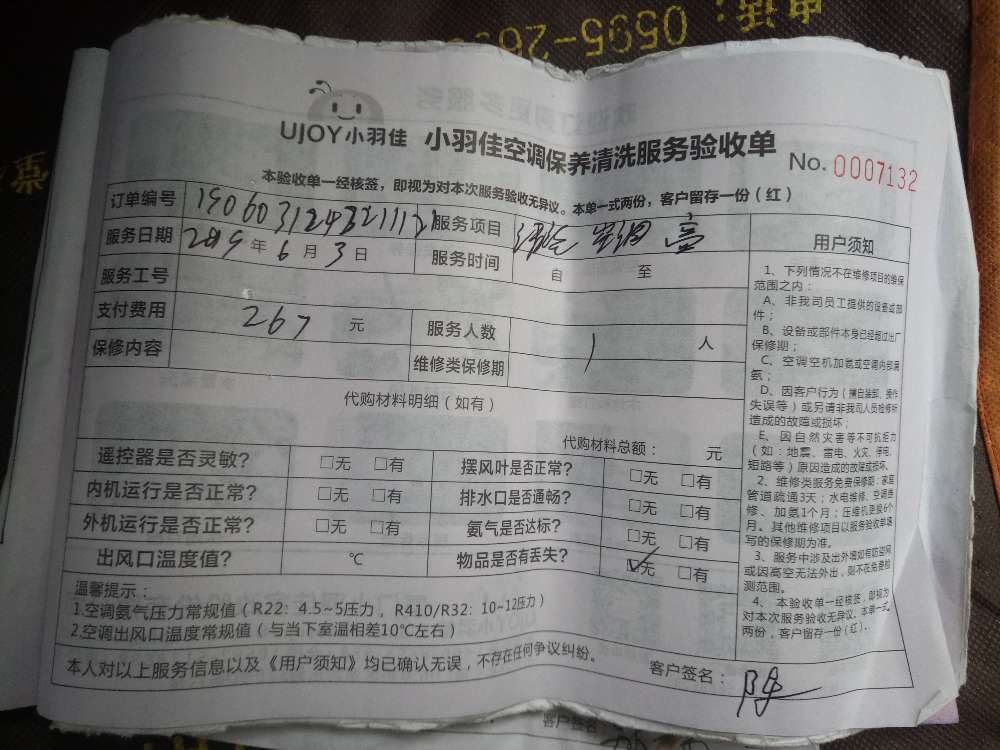 电话：0595-26
UJOY小羽佳 小羽佳空调保养清洗服务验收单 No. 0007132
本验收单一经核签，即视为对本次服务验收无异议。本单一式两份，客户留存一份（红）
订单编号 服务项目 空调
服务日期 2019年6月3日 服务时间 自 至
服务工号
支付费用 267 元 服务人数 1 人
保修内容 维修类保修期
代购材料明细（如有）
代购材料总额： 元
遥控器是否灵敏？ □无 □有 摆风叶是否正常？ □无 □有
内机运行是否正常？ □无 □有 排水口是否通畅？ □无 □有
外机运行是否正常？ □无 □有 氨气是否达标？ □无 □有
出风口温度值？ ℃ 物品是否有丢失？ ☑无 □有
温馨提示：
1.空调氨气压力常规值（R22：4.5~5压力，R410/R32：10~12压力）
2.空调出风口温度常规值（与当下室温相差10℃左右）
本人对以上服务信息以及《用户须知》均已确认无误，不存在任何争议纠纷。
客户签名：陈
用户须知
1、下列情况不在维修项目的维保
范围之内：
A、非我司员工提供的设备或部
件；
B、设备或部件本身已经超过出厂
保修期；
C、空调空机加氨或空调内部漏
氨；
D、因客户行为（擅自装卸、操作
失误等）或另请非我司人员检修所
造成的故障或损坏；
E、因自然灾害等不可抗拒力
（如：地震、雷电、火灾、停电、
短路等）原因造成的故障或损坏。
2、维修类服务免费保修期：家庭
管道疏通3天；水电维修、空调维
修、加氨1个月；压缩机更换6个
月。其他维修项目以服务验收单填
写的保修期为准。
3、服务中涉及出外墙如有防盗网
或因高空无法外出，则不在免费检
测范围。
4、本验收单一经核签，即视为
对本次服务验收无异议。本单一式
两份，客户留存一份（红）。
客户签名